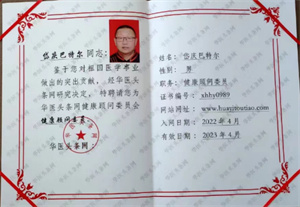 岱庆巴特尔同志：
鉴于您对祖国医学事业
做出的突出贡献，经华医头
条网研究决定，特聘请您为
华医头条网健康顾问委员会
健康顾问委员
华医头条网
姓名：岱庆巴特尔
性别：男
职务：健康顾问委员
证书编号：shhy0989
网站网址：www.huayitoutiao.com
入网日期：2022年4月
有效日期：2023年4月